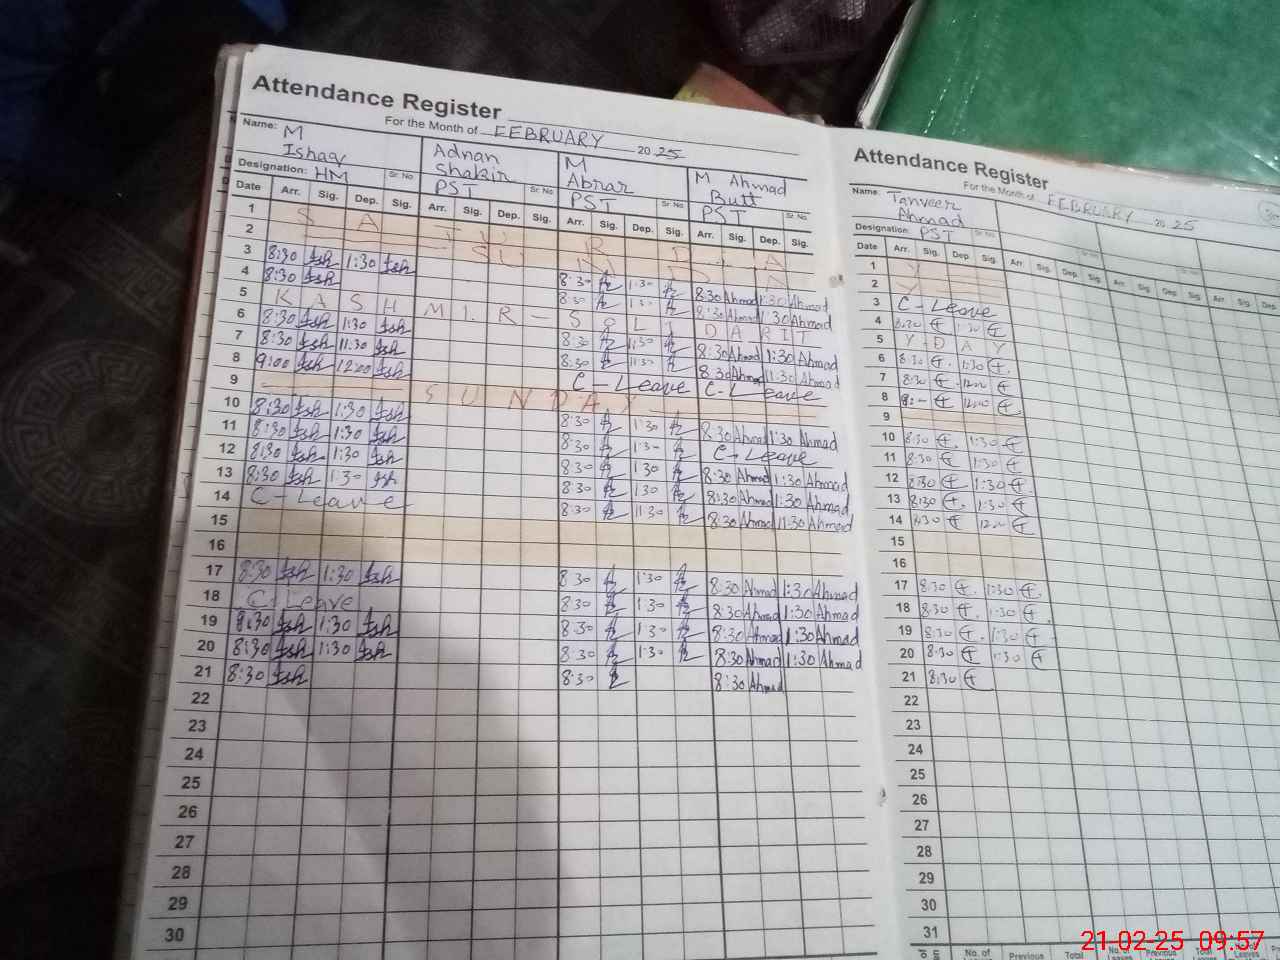 Attendance Register
For the Month of FEBRUARY 2025
Name: M Ishaq
Adnan Shakir
M Abrar
M Ahmad Butt
Designation: HM Sr. No
PST Sr. No
PST Sr. No
PST Sr. No
Date Arr. Sig. Dep. Sig. Arr. Sig. Dep. Sig. Arr. Sig. Dep. Sig. Arr. Sig. Dep. Sig.
1 S A T U R D A
2 S U N D A
3 8:30 Ish 1:30 Ish 8:30 1:30 8:30 Ahmad 1:30 Ahmad
4 8:30 Ish 8:30 1:30 8:30 Ahmad 1:30 Ahmad
5 K A S H M I R - S O L I D A R I T
6 8:30 Ish 1:30 Ish 8:30 11:30 8:30 Ahmad 1:30 Ahmad
7 8:30 Ish 11:30 Ish 8:30 11:30 8:30 Ahmad 11:30 Ahmad
8 9:00 Ish 12:00 Ish C-Leave C-Leave
9 S U N D A Y
10 8:30 Ish 1:30 Ish 8:30 1:30 8:30 Ahmad 1:30 Ahmad
11 8:30 Ish 1:30 Ish 8:30 1:30 C-Leave
12 8:30 Ish 1:30 Ish 8:30 1:30 8:30 Ahmad 1:30 Ahmad
13 8:30 Ish 1:30 Ish 8:30 1:30 8:30 Ahmad 1:30 Ahmad
14 C-Leave 8:30 11:30 8:30 Ahmad 11:30 Ahmad
15
16
17 8:30 Ish 1:30 Ish 8:30 1:30 8:30 Ahmad 1:30 Ahmad
18 C-Leave 8:30 1:30 8:30 Ahmad 1:30 Ahmad
19 8:30 Ish 1:30 Ish 8:30 1:30 8:30 Ahmad 1:30 Ahmad
20 8:30 Ish 1:30 Ish 8:30 1:30 8:30 Ahmad 1:30 Ahmad
21 8:30 Ish 8:30 8:30 Ahmad
22
23
24
25
26
27
28
29
30
Attendance Register
For the Month of FEBRUARY 2025
Name: Tanveer Ahmad
Designation: PST Sr. No
Date Arr. Sig. Dep. Sig. Arr. Sig. Dep. Sig. Arr. Sig. Dep. Sig. Arr. Sig. Dep.
1 Y
2 Y
3 C-Leave
4 8:30 1:30
5 Y - D A Y
6 8:30 1:30
7 8:30 12:00
8 9:- 12:00
9
10 8:30 1:30
11 8:30 1:30
12 8:30 1:30
13 8:30 1:30
14 8:30 12:00
15
16
17 8:30 1:30
18 8:30 1:30
19 8:30 1:30
20 8:30 1:30
21 8:30
22
23
24
25
26
27
28
29
30
31
No. of Leaves Previous Total No. of Leaves Previous Total Leaves
21-02-25 09:57